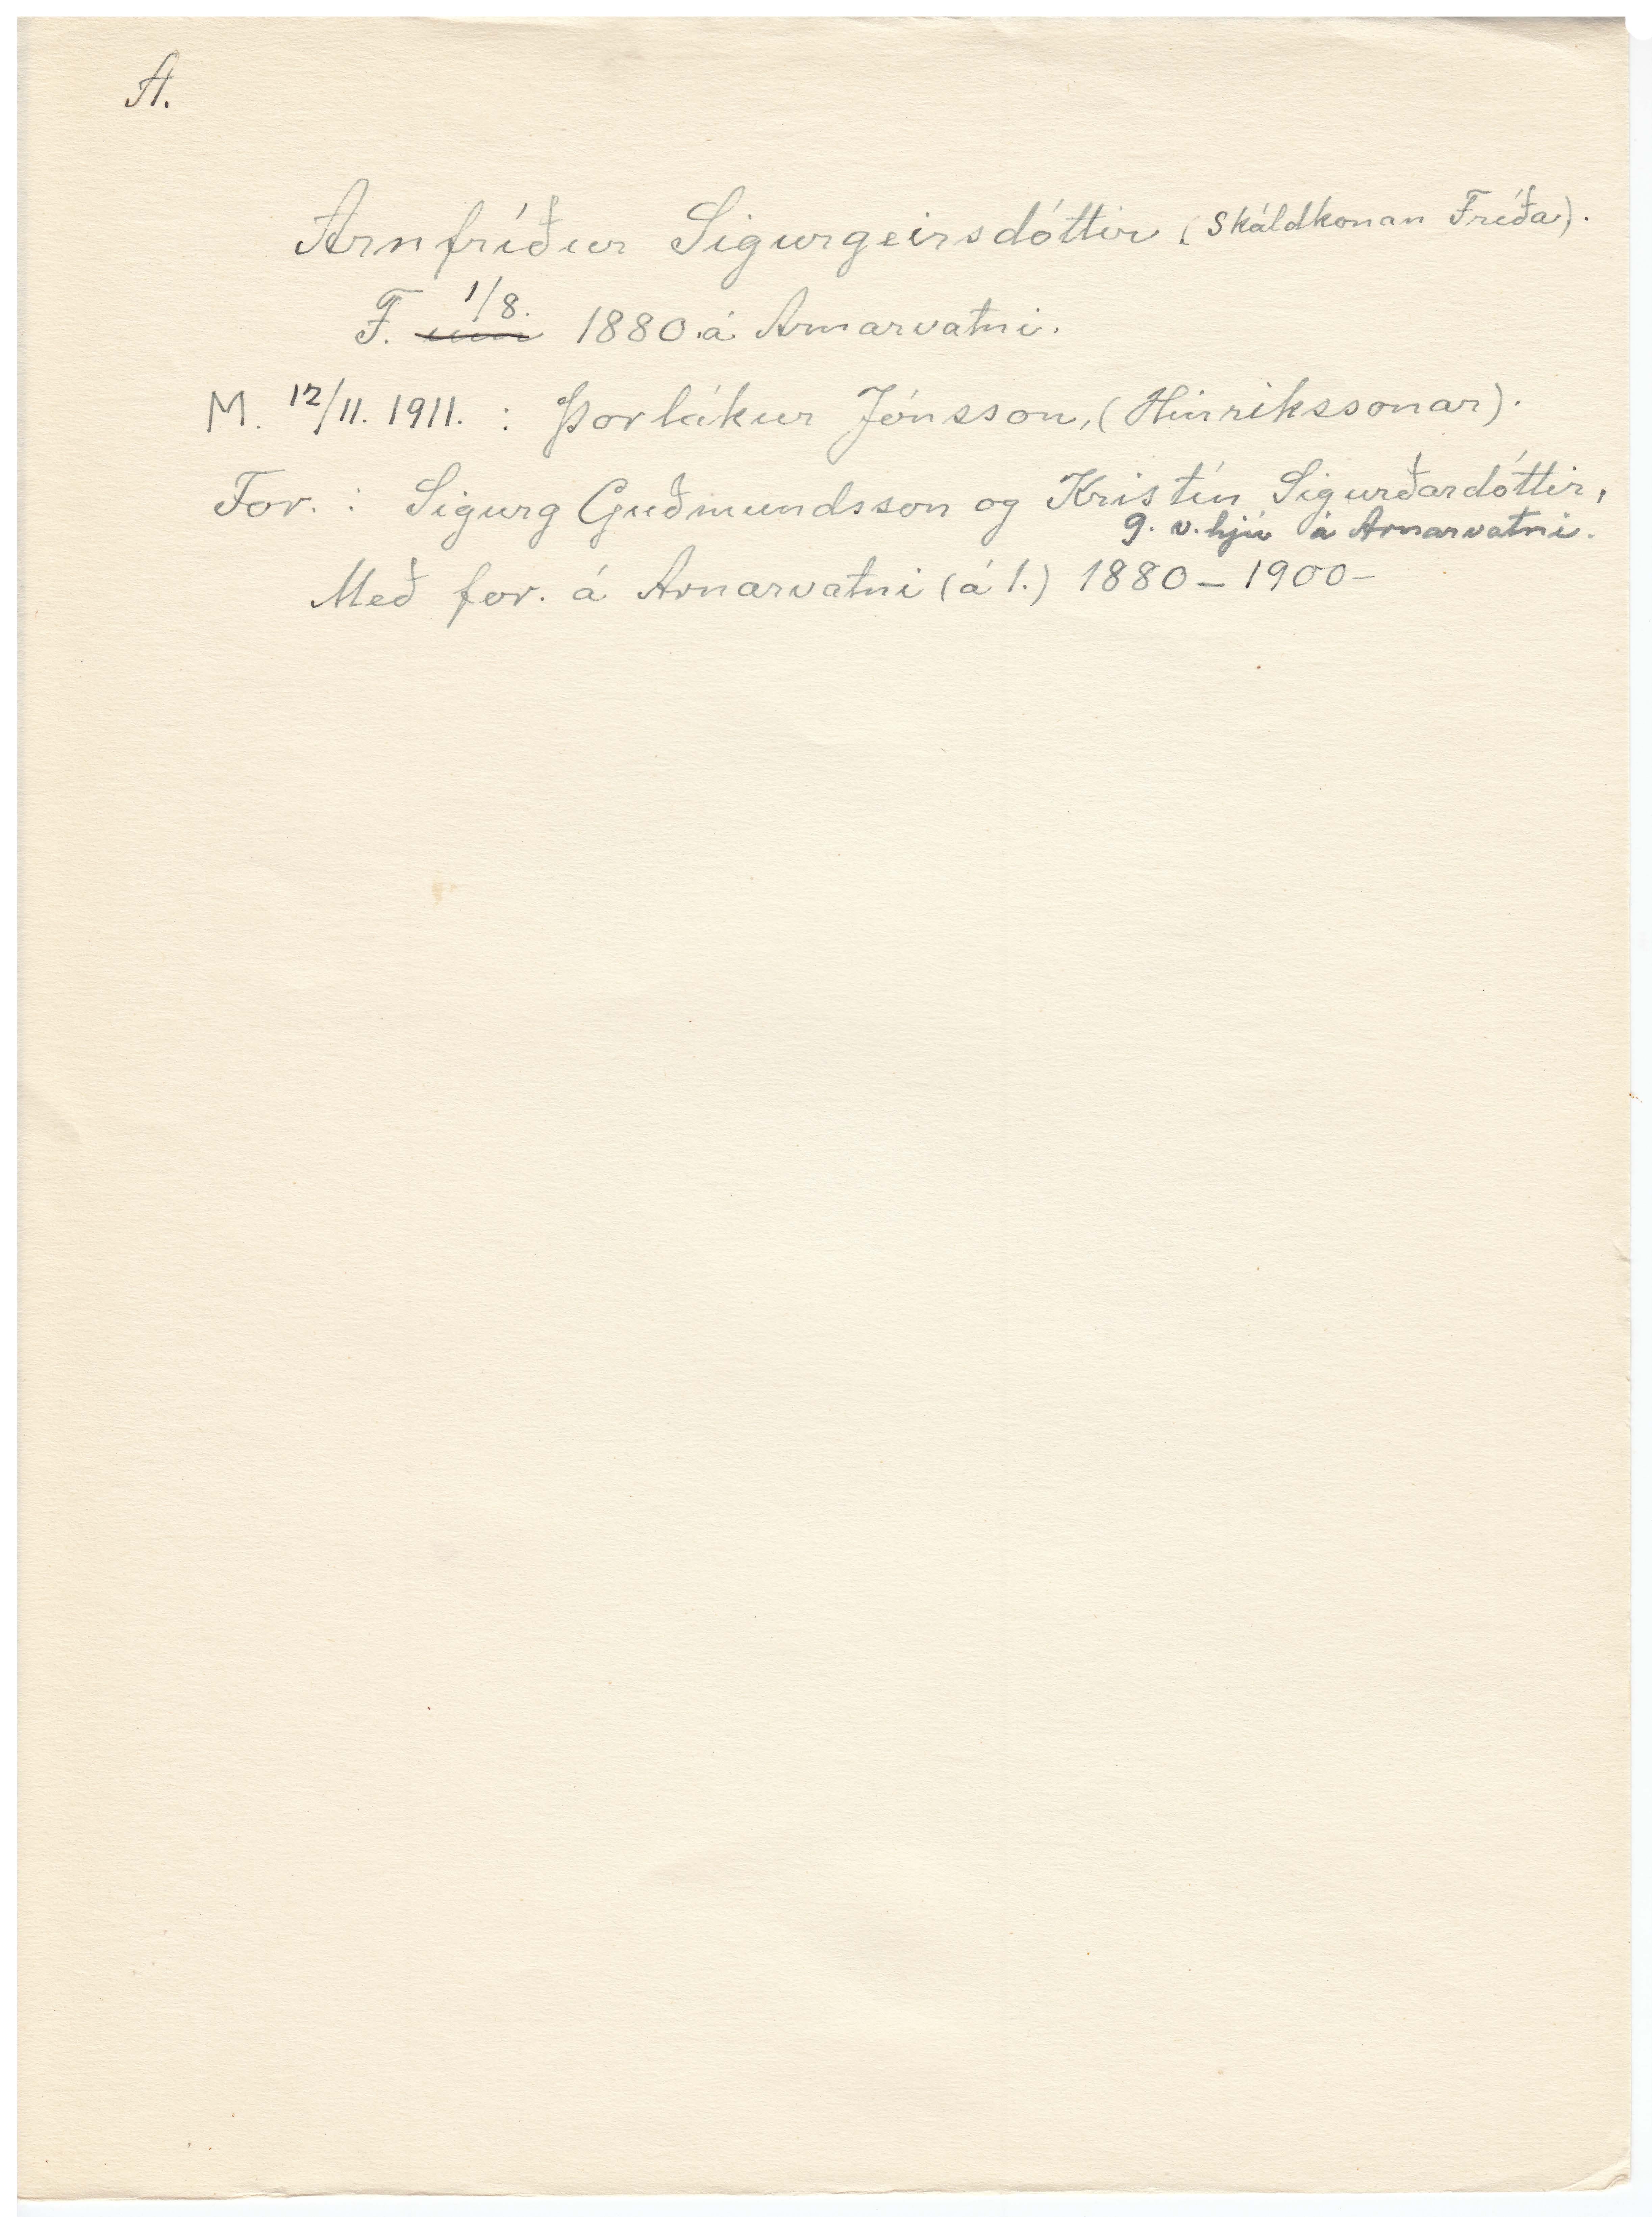 A.
Arnfríður Sigurgeirsdóttir (Skáldkonan Fríða).
F. um 1/8. 1880 á Arnarvatni.
M. 12/11. 1911. : Þorlákur Jónsson, (Hinrikssonar).
For. : Sigurg Guðmundsson og Kristín Sigurðardóttir,
g. v. hjú á Arnarvatni.
Með for. á Arnarvatni (á 1.) 1880 – 1900 –